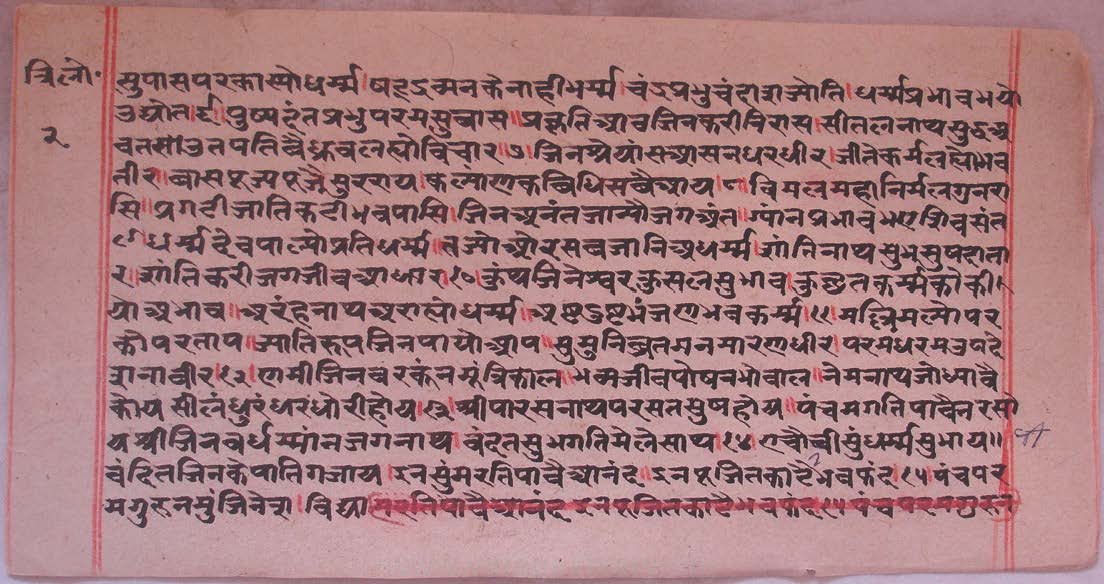 त्रिलो॰
२
सुपासपरकास्योधर्म्म।षटऽन्मनकैनाहीभर्म्म॥चंऽप्रभुचंहाराज्योति।धर्म्मप्रभावभयो
उद्योत।६।पुष्पदंतप्रभुपरमसुवास।प्रकृतिआवजिनकरीविरास।सीतलनाथसुऽअ
वतसोउतपतिवैध्रुवलस्योविचार।७।जिनश्रेयांसआसनधरधीर।जीतेकर्मलस्योभव
तीर।वासपूज्यपूजैसुरराय।कल्याणकविधिसवैआय।८।विमलमहानिर्मलगुनरा
सि॥प्रगटीजातिकटीभवपासि।जिनअनंतजान्यौजगअंत।ग्यांनप्रभावभएशिवसंत
९॥धर्म्मदेवपाल्योप्रतिधर्म्म।तज्योओरसबजानिअधर्म्म।शांतिनाथसुभसुषदाता
र।शांतिकरीजगजीवआधार।१०।कुंथजिनेश्वरकुसलसुभाव।कुछतकर्म्मकोकी
योअभाव॥अरहनाथअराल्योधर्म्म।अष्टऽष्टभंजणभवकर्म्म।११।मल्लिमल्योपर
कौपरताप।ज्योतिरूपजिनपायोआप॥सुमुनिसुव्रतमनमारणधीर।परमधरमउपदे
शनावीर।१२।णमीजिनवरकूंनमूंत्रिकाल।भव्यजीवपोषनभोवाल।नेमनाथजोध्यावै
कोय।सीलंधुरंधरधोरीहोय।१३।श्रीपारसनाथपरसतसुषहोय॥पंचमगतिपावैनरसो
य।श्रीजिनवर्धम्मांनजगनाथ।वंदतसुभगतिमेलेसाथ।१४।एचौवीसुंधर्म्मसुभाय॥
वंदितजिनकेपातिगजाय।इनसुंमरतिपावैआनंद॥इनपूजितकाटैभवफंद।१५।पंचपर
मगुरूनमुंजिनेशा।विद्या